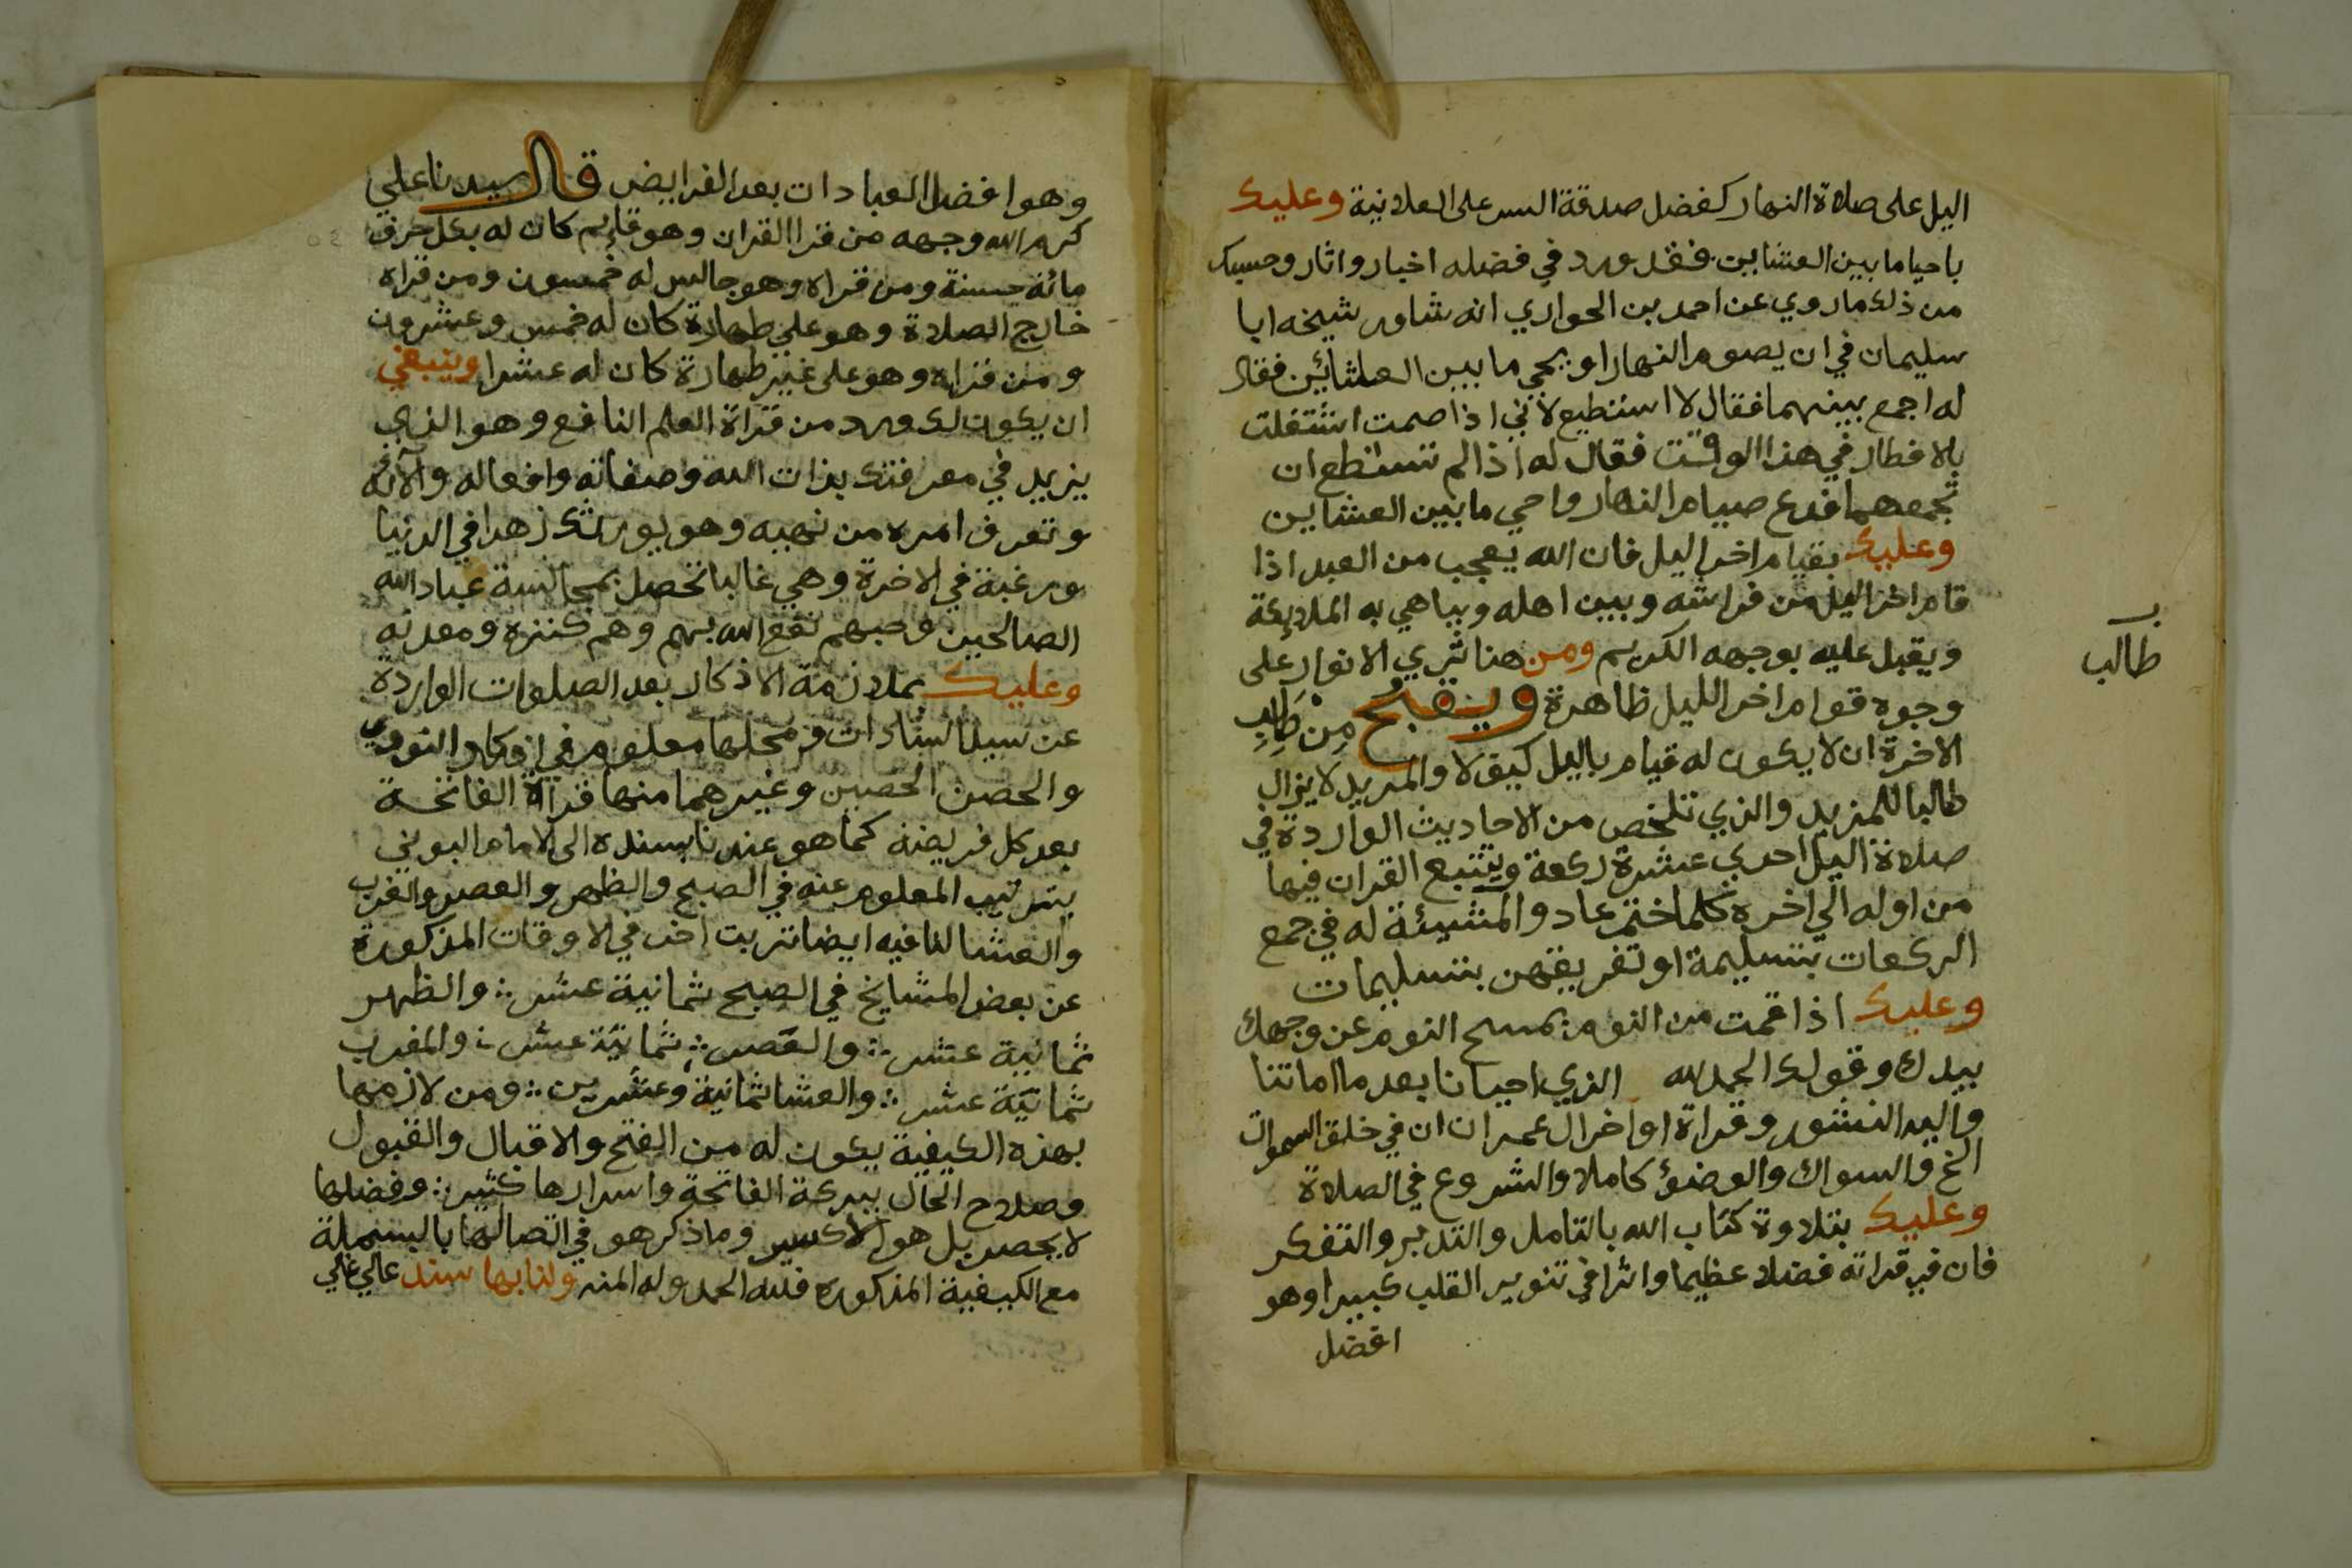 اليل على صلاة النهار كفضل صدقة السر على العلانية وعليك
باحيا ما بين العشاين فقد ورد في فضله اخبار واثار وحسبك
من ذلك ما روي عن احمد بن الحواري انه شاور شيخه ابا
سليمان في ان يصوم النهار او يحي ما بين العشائين فقال
له اجمع بينهما فقال لا استطيع لاني اذا صمت اشتغلت
بالافطار في هذا الوقت فقال له اذا لم تستطع ان
تجمعهما فدع صيام النهار واحي ما بين العشاين
وعليك بقيام اخر اليل فان الله يعجب من العبد اذا
قام اخر اليل من فراشه وبين اهله ويباهي به الملايكة
ويقبل عليه بوجهه الكريم ومن هنا تري الانوار على
وجوه قوام اخر الليل ظاهرة ويقبح من طالب
طالب
الاخرة ان لا يكون له قيام باليل كيف لا والمريد لا يزال
طالبا للمزيد والذي تلخص من الاحاديث الواردة في
صلاة اليل احدي عشرة ركعة ويتتبع القران فيها
من اوله الي اخره كلما ختم عاد والمشيئة له في جمع
الركعات بتسليمة او تفريقهن بتسليمات
وعليك اذا قمت من النوم بمسح النوم عن وجهك
بيدك وقولك الحمد لله الذي احيانا بعد ما اماتنا
واليه النشور وقراة اواخر ال عمران ان في خلق السموات
الخ والسواك والوضؤ كاملا والشروع في الصلاة
وعليك بتلاوة كتاب الله بالتامل والتدبر والتفكر
فان في قراته فضلا عظيما واثرا في تنوير القلب كبيرا وهو
افضل
وهو افضل العبادات بعد الفرايض قال سيدنا علي
كرم الله وجهه من قرا القران وهو قايم كان له بكل حرف
مائة حسنة ومن قراه وهو جالس له خمسون ومن قراه
خارج الصلاة وهو علي طهارة كان له خمس وعشرون
ومن قراه وهو على غير طهارة كان له عشرا وينبغي
ان يكون لك ورد من قراة العلم النافع وهو الذي
يزيد في معرفتك بذات الله وصفاته وافعاله والآئه
وتعرف امره من نهيه وهو يورثك زهدا في الدنيا
ورغبة في الاخرة وهي غالبا تحصل بمجالسة عباد الله
الصالحين وحبهم نفع الله بهم وهم كنزه ومعدنه
وعليك بملازمة الاذكار بعد الصلوات الواردة
عن سيد السادات ومحلها معلوم في اذكار النووي
والحصن الحصين وغيرهما منها قراة الفاتحة
بعد كل فريضة كما هو عندنا بسنده الى الامام البوني
بترتيب المعلوم عنه في الصبح والظهر والعصر والغرب
والعشا لنا فيه ايضا ترتيب اخر في الاوقات المذكورة
عن بعض المشايخ في الصبح ثمانية عشر والظهر
ثمانية عشر والعصر ثمانية عشر والمغرب
ثمانية عشر والعشا ثمانية وعشرين ومن لازمها
بهذه الكيفية يكون له من الفتح والاقبال والقبول
وصلاح الحال ببركة الفاتحة واسرارها كثير وفضلها
لا يحصر بل هو الاكسير وما ذكر هو في اتصالها بالبسملة
مع الكيفية المذكورة فلله الحمد وله المنه ولنا بها سند عالي غالي